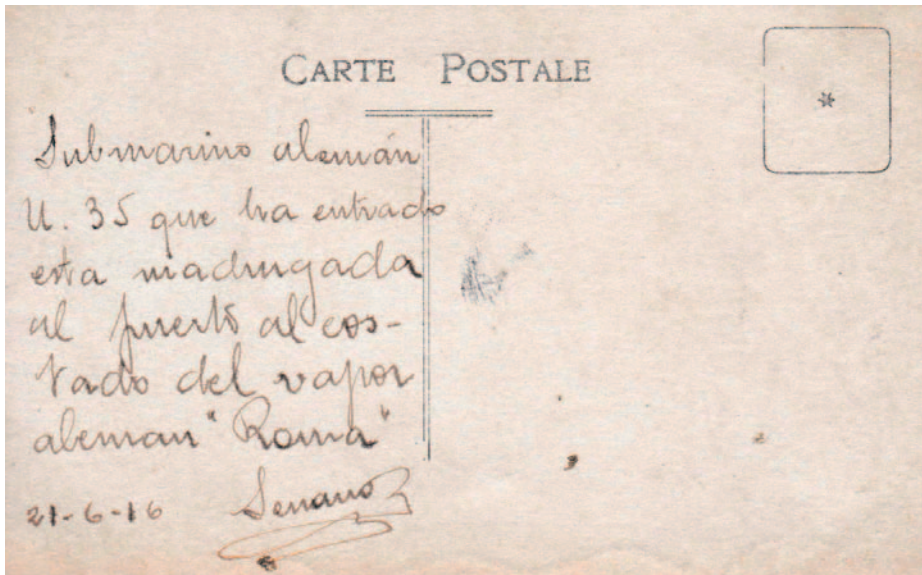 CARTE POSTALE
Submarino alemán
U. 35 que ha entrado
esta madrugada
al puerto al cos-
tado del vapor
aleman "Roma"
21-6-16 Serrano